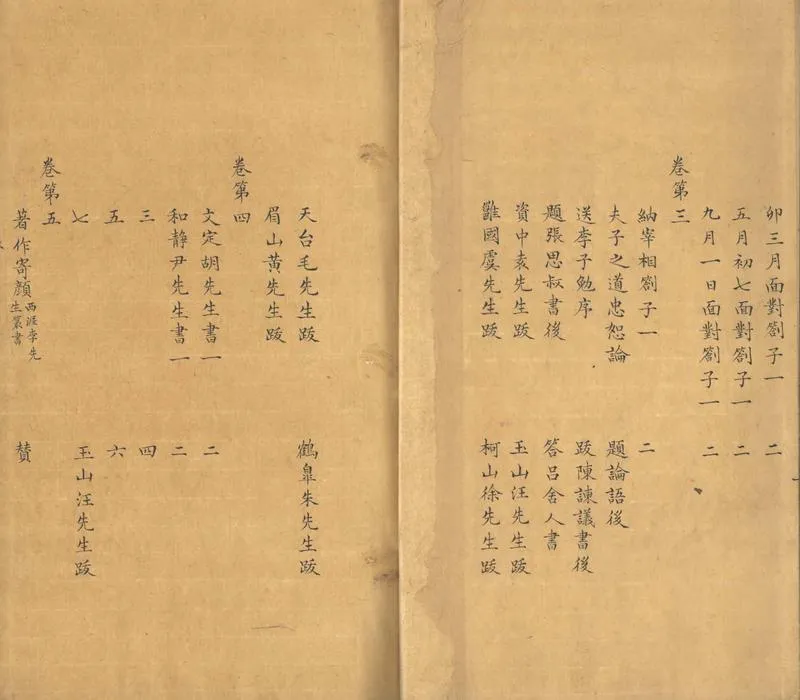 卯三月面對劄子一 二
五月初七面對劄子一 二
九月一日面對劄子一 二
卷第三
納宰相劄子一 二
夫子之道忠恕論 題論語後
送李子勉序 跋陳諫議書後
題張思叔書後 答呂舍人書
資中袁先生跋 玉山汪先生跋
雝國虞先生跋 柯山徐先生跋
天台毛先生跋 鶴皐朱先生跋
眉山黃先生跋
卷第四
文定胡先生書一 二
和靜尹先生書一 二
三 四
五 六
七 玉山汪先生跋
卷第五
著作寄顏西涯李先生篆書 贊